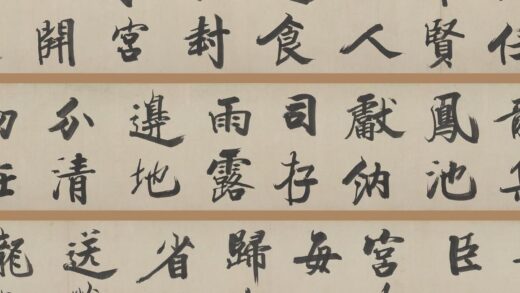 任
賢
人
食
封
宮
開
鳳池
獻納
司存
雨露
邊地
分清
臣
宮
每
歸
省
送
龍